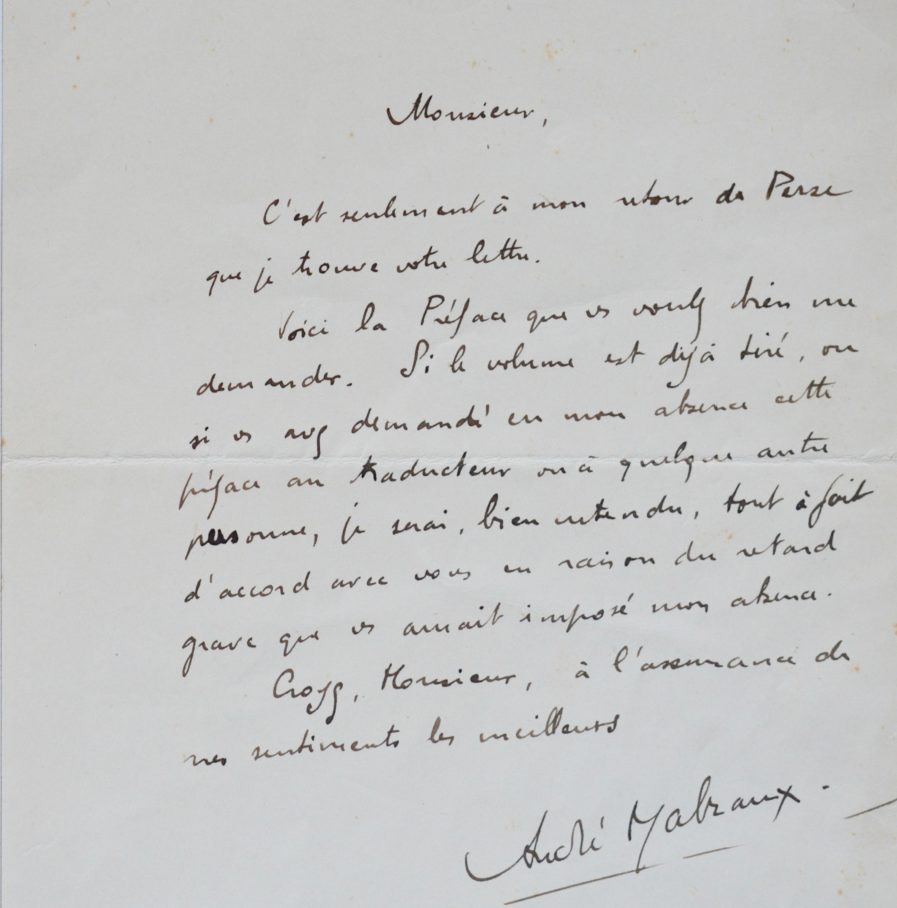 Monsieur,
C'est seulement à mon retour de Perse
que je trouve votre lettre.
Voici la Préface que vs voulez bien me
demander. Si le volume est déjà tiré, ou
si vs avez demandé en mon absence cette
préface au traducteur ou à quelque autre
personne, je serai, bien entendu, tout à fait
d'accord avec vous en raison du retard
grave que vs aurait imposé mon absence.
Croyez, Monsieur, à l'assurance de
mes sentiments les meilleurs
André Malraux.